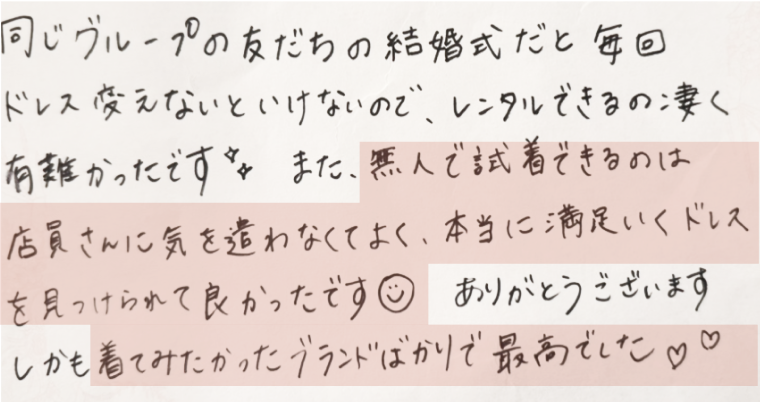 同じグループの友だちの結婚式だと毎回
ドレス変えないといけないので、レンタルできるの凄く
有難かったです また、無人で試着できるのは
店員さんに気を遣わなくてよく、本当に満足いくドレス
を見つけられて良かったです ありがとうございます
しかも着てみたかったブランドばかりで最高でした♡♡